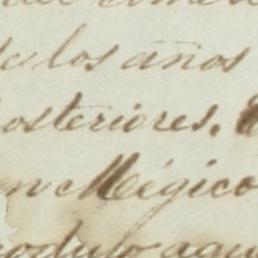 de los años
posteriores.
en Mégico
produjo aqu